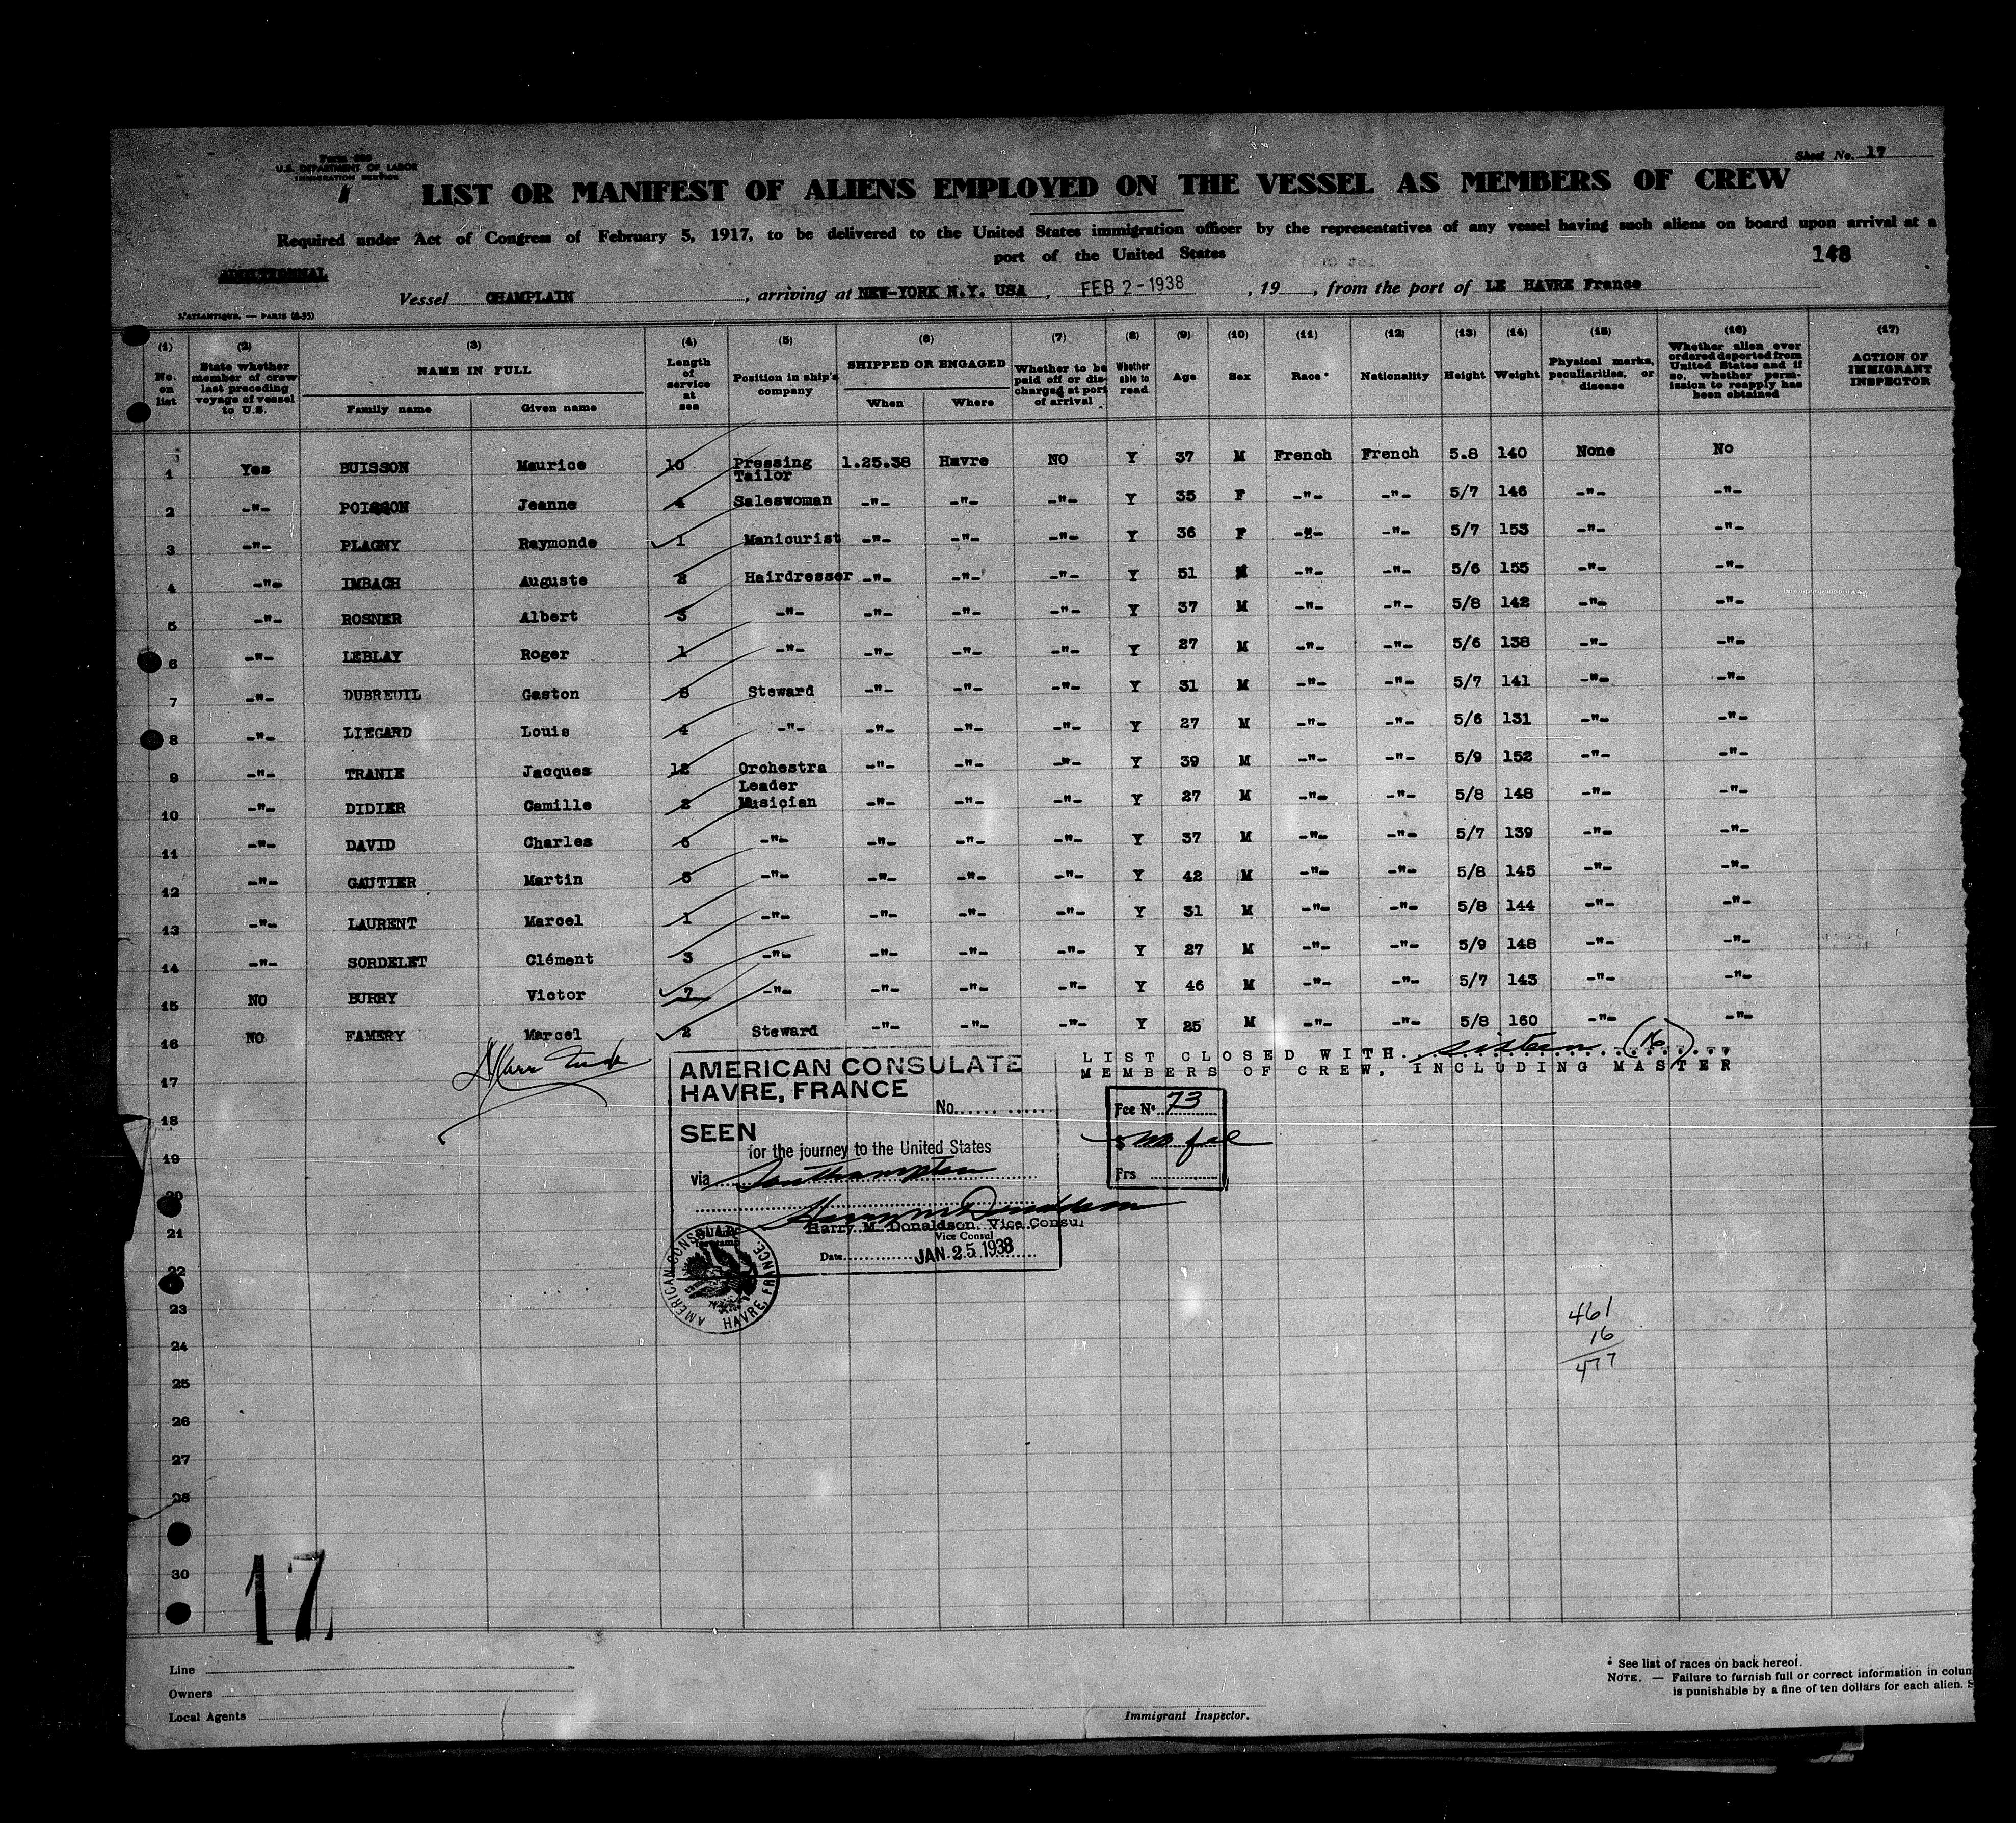 U.S. DEPARTMENT OF LABOR
IMMIGRATION SERVICE
Sheet No. 17
LIST OR MANIFEST OF ALIENS EMPLOYED ON THE VESSEL AS MEMBERS OF CREW
Required under Act of Congress of February 5, 1917, to be delivered to the United States immigration officer by the representatives of any vessel having such aliens on board upon arrival at a
port of the United States
148
Vessel CHAMPLAIN, arriving at NEW-YORK N.Y. USA, FEB 2 - 1938, 19, from the port of LE HAVRE France
L'ATLANTIQUE. — PARIS (8.35)
(1) (2) (3) (4) (5) (6) (7) (8) (9) (10) (11) (12) (13) (14) (15) (16) (17)
No. on list
State whether member of crew last preceding voyage of vessel to U.S.
NAME IN FULL
Family name Given name
Length of service at sea
Position in ship's company
SHIPPED OR ENGAGED
When Where
Whether to be paid off or discharged at port of arrival
Whether able to read
Age Sex Race * Nationality Height Weight
Physical marks, peculiarities, or disease
Whether alien ever ordered deported from United States and if so, whether permission to reapply has been obtained
ACTION OF IMMIGRANT INSPECTOR
1 Yes BUISSON Maurice 10 Pressing Tailor 1.25.38 Havre NO Y 37 M French French 5.8 140 None No
2 -"- POISSON Jeanne 4 Saleswoman -"- -"- -"- Y 35 F -"- -"- 5/7 146 -"- -"-
3 -"- PLAGNY Raymonde 1 Manicurist -"- -"- -"- Y 36 F -"- -"- 5/7 153 -"- -"-
4 -"- IMBACH Auguste 2 Hairdresser -"- -"- -"- Y 51 M -"- -"- 5/6 155 -"- -"-
5 -"- ROSNER Albert 3 -"- -"- -"- -"- Y 37 M -"- -"- 5/8 142 -"- -"-
6 -"- LEBLAY Roger 1 -"- -"- -"- -"- Y 27 M -"- -"- 5/6 138 -"- -"-
7 -"- DUBREUIL Gaston 8 Steward -"- -"- -"- Y 31 M -"- -"- 5/7 141 -"- -"-
8 -"- LIEGARD Louis 4 -"- -"- -"- -"- Y 27 M -"- -"- 5/6 131 -"- -"-
9 -"- TRANIE Jacques 12 Orchestra Leader -"- -"- -"- Y 39 M -"- -"- 5/9 152 -"- -"-
10 -"- DIDIER Camille 2 Musician -"- -"- -"- Y 27 M -"- -"- 5/8 148 -"- -"-
11 -"- DAVID Charles 6 -"- -"- -"- -"- Y 37 M -"- -"- 5/7 139 -"- -"-
12 -"- GAUTIER Martin 5 -"- -"- -"- -"- Y 42 M -"- -"- 5/8 145 -"- -"-
13 -"- LAURENT Marcel 1 -"- -"- -"- -"- Y 31 M -"- -"- 5/8 144 -"- -"-
14 -"- SORDELET Clément 3 -"- -"- -"- -"- Y 27 M -"- -"- 5/9 148 -"- -"-
15 NO BURRY Victor 7 -"- -"- -"- -"- Y 46 M -"- -"- 5/7 143 -"- -"-
16 NO FAMERY Marcel 2 Steward -"- -"- -"- Y 25 M -"- -"- 5/8 160 -"- -"-
LIST CLOSED WITH sixteen (16)
MEMBERS OF CREW, INCLUDING MASTER
17
18
19
20
21
22
23
24
25
26
27
28
30
AMERICAN CONSULATE
HAVRE, FRANCE
No.
SEEN
for the journey to the United States
via Southampton
Harry M. Donaldson
Harry M. Donaldson, Vice Consul
Vice Consul
Date JAN 25 1938
AMERICAN CONSULATE HAVRE, FRANCE.
Fee No. 73
$ no fee
Frs
461
16
477
17
Line
Owners
Local Agents
Immigrant Inspector.
* See list of races on back hereof.
NOTE. — Failure to furnish full or correct information in colum
is punishable by a fine of ten dollars for each alien. S